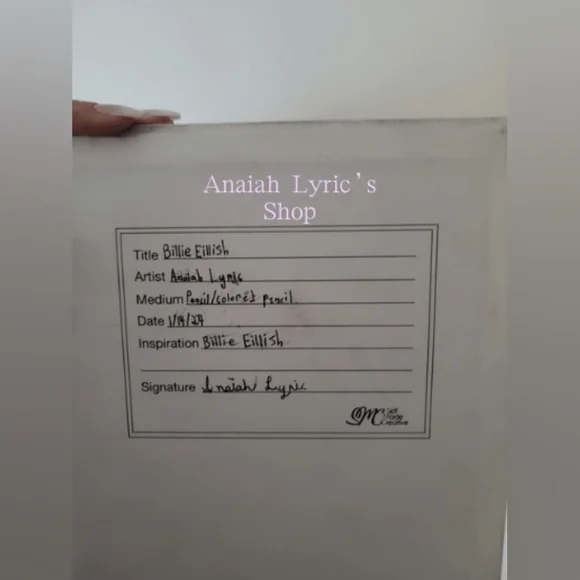 Anaiah Lyric's
Shop
Title Billie Eillish
Artist Anaiah Lyric
Medium Pencil/colored pencil
Date 1/14/24
Inspiration Billie Eillish
Signature Anaiah Lyric
SMC Self
Made
Creative